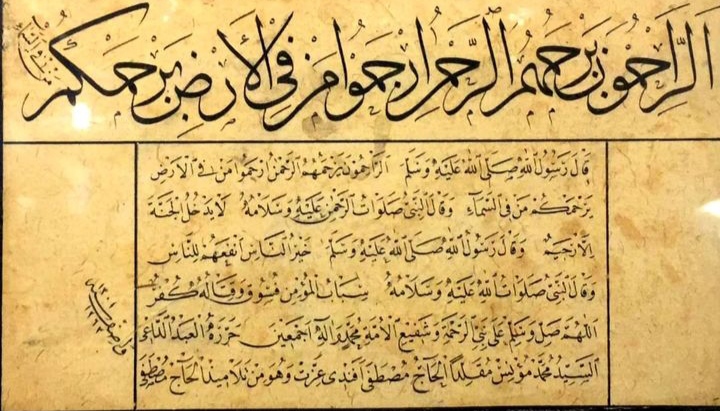 الراحمون يرحمهم الرحمن ارحموا من في الأرض يرحمكم
من في السماء
قال رسول الله صلى الله عليه وسلم الراحمون يرحمهم الرحمن ارحموا من في الأرض
يرحمكم من في السماء وقال النبي صلوات الرحمن عليه وسلامه لا يدخل الجنة
إلا رحيم وقال رسول الله صلى الله عليه وسلم خير الناس أنفعهم للناس
وقال النبي صلوات الله عليه وسلامه سباب المؤمن فسوق وقتاله كفر
اللهم صل وسلم على نبي الرحمة وشفيع الأمة محمد وآله أجمعين حرره العبد الداعي
السيد محمد مؤنس مقلدا الحاج مصطفى أفندي عزت وهو من تلاميذ الحاج مصطفى